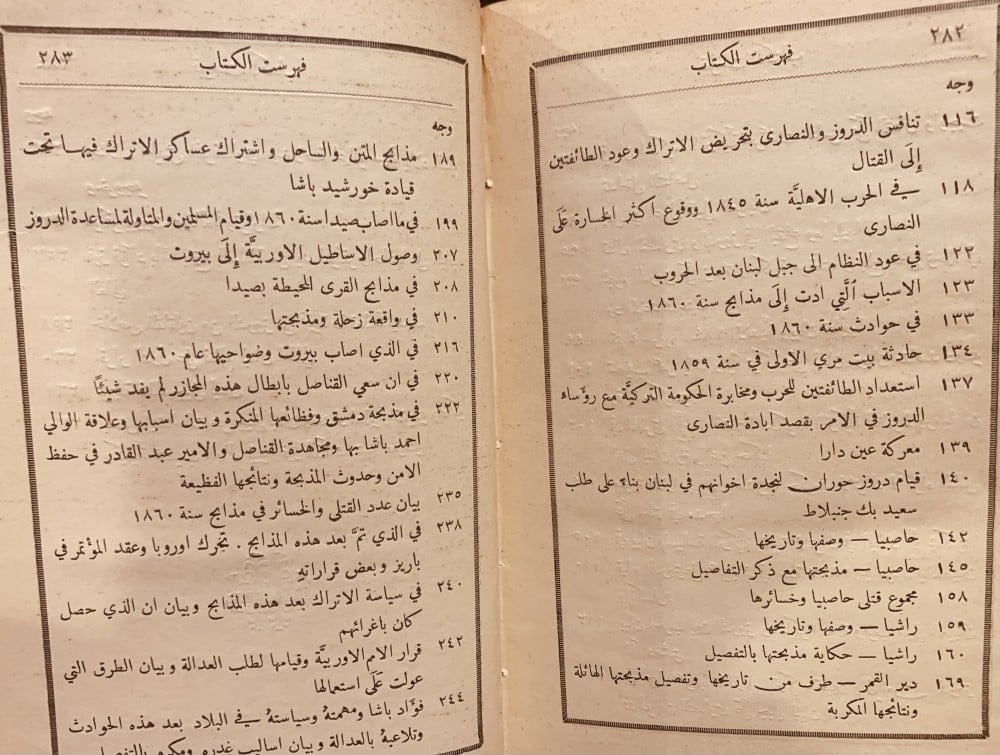 ٢٨٢
فهرست الكتاب
وجه
١١٦ تنافس الدروز والنصارى بتحريض الاتراك وعود الطائفتين
إلَى القتال
١١٨ في الحرب الاهليَّة سنة ١٨٤٥ ووقوع اكثر الخسارة عَلَى
النصارى
١٢٢ في عود النظام الى جبل لبنان بعد الحروب
١٢٣ الاسباب الَّتِي ادت إلَى مذابح سنة ١٨٦٠
١٣٣ في حوادث سنة ١٨٦٠
١٣٤ حادثة بيت مري الاولى في سنة ١٨٥٩
١٣٧ استعداد الطائفتين للحرب ومخابرة الحكومة التركيَّة مع رؤساء
الدروز في الامر بقصد ابادة النصارى
١٣٩ معركة عين دارا
١٤٠ قيام دروز حوران لنجدة اخوانهم في لبنان بناءً على طلب
سعيد بك جنبلاط
١٤٢ حاصبيا — وصفها وتاريخها
١٤٥ حاصبيا — مذبحتها مع ذكر التفاصيل
١٥٨ مجموع قتلى حاصبيا وخسائرها
١٥٩ راشيا — وصفها وتاريخها
١٦٠ راشيا — حكاية مذبحتها بالتفصيل
١٦٩ دير القمر — طرف من تاريخها وتفصيل مذبحتها الهائلة
ونتائجها المكربة
٢٨٣
فهرست الكتاب
وجه
١٨٩ مذابح المتن والساحل واشتراك عساكر الاتراك فيها تحت
قيادة خورشيد باشا
١٩٩ في ما اصاب صيدا سنة ١٨٦٠ وقيام المسلمين والمتاولة لمساعدة الدروز
٢٠٧ وصول الاساطيل الاوربيَّة إلَى بيروت
٢٠٨ في مذابح القرى المحيطة بصيدا
٢١٠ في واقعة زحلة ومذبحتها
٢١٦ في الذي اصاب بيروت وضواحيها عام ١٨٦٠
٢٢٠ في ان سعي القناصل بابطال هذه المجازر لم يفد شيئًا
٢٢٢ في مذبحة دمشق وفظائعها المنكرة وبيان اسبابها وعلاقة الوالي
احمد باشا بها ومجاهدة القناصل والامير عبد القادر في حفظ
الامن وحدوث المذبحة ونتائجها الفظيعة
٢٣٥ بيان عدد القتلى والخسائر في مذابح سنة ١٨٦٠
٢٣٨ في الذي تمَّ بعد هذه المذابح . تحرك اوروبا وعقد المؤتمر في
باريز وبعض قراراتهِ
٢٤٠ في سياسة الاتراك بعد هذه المذابح وبيان ان الذي حصل
كان باغرائهم
٢٤٢ قرار الامم الاوربيَّة وقيامها لطلب العدالة وبيان الطرق التي
عولت عَلَى استعمالها
٢٤٤ فؤاد باشا ومهمتهُ وسياستهُ في البلاد بعد هذه الحوادث
وتلاعبهُ بالعدالة وبيان اساليب غدره ومكره بالتفصيل